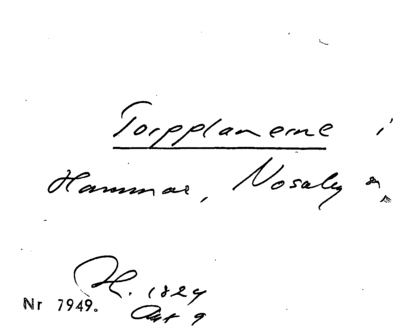 Torpplanerne i
Hammar, Nosaby
H. 1824
Nr 7949. Akt 9